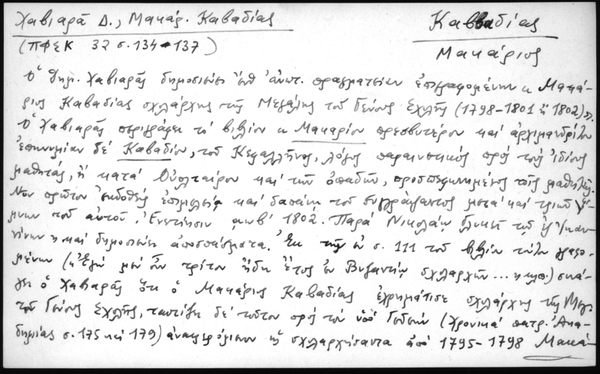 Χαβιαρᾶ Δ., Μακάρ. Καβαδίας
Καββαδίας
(ΠΦΣΚ 32 σ. 134-137)
Μακάριος
Ὁ Δημ. Χαβιαρᾶς δημοσιεύει ὑπ' ἀνωτ. πραγματείαν ἐπιγραφομένην « Μακά-
ριος Καβαδίας σχολάρχης τῆς Μεγάλης τοῦ Γένους Σχολῆς (1798-1801 ἢ 1802)».
Ὁ Χαβιαρᾶς περιγράφει τὸ βιβλίον « Μακαρίου πρεσβυτέρου καὶ ἀρχιμανδρίτου
ἐπωνυμίαν δὲ Καβαδίου, τοῦ Κεφαλλῆνος, λόγος παραινετικὸς πρὸς τοὺς ἰδίους
μαθητάς, ἢ κατὰ Οὐολταίρου καὶ τῶν ὀπαδῶν, προσπεφωνημένος τοῖς μαθηταῖς.
Νῦν πρῶτον ἐκδοθεὶς ἐπιμελείᾳ καὶ δαπάνῃ τοῦ συγγράψαντος μετὰ καὶ τριῶν
τοῦ αὐτοῦ. Ἐνετίησιν αωβ' 1802. Παρὰ Νικολάῳ Γλυκεῖ τῷ ἐξ Ἰωαν-
νίνων » καὶ δημοσιεύει ἀποσπάσματα. Ἐκ τῆς ἐν σ. 111 τοῦ βιβλίου
μένων («Ἐγὼ μὲν οὖν τρίτον ἤδη ἔτος ἐν Βυζαντίῳ σχολαρχῶν ... » κτλ.)
ὁ Χαβιαρᾶς ὅτι ὁ Μακάριος Καβαδίας ἐχρημάτισε σχολάρχης τῆς Μεγ.
τοῦ Γένους Σχολῆς, ταυτίζει δὲ τοῦτον πρὸς τὸν ὑπὸ Γεδεὼν (Χρονικὰ πατρ. Ἀκα-
δημίας σ. 175 καὶ 179) ἀναφερόμενον ὡς σχολαρχήσαντα ἀπὸ 1795-1798 Μακά-